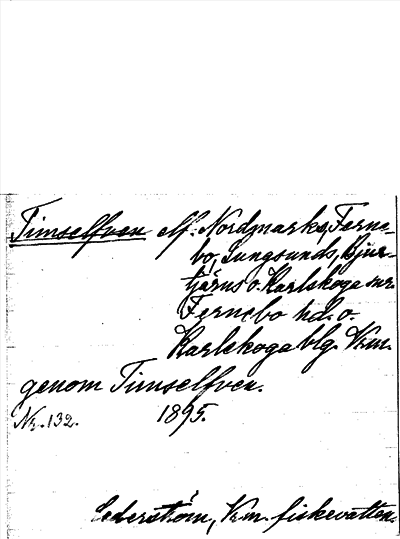 Timselfven elf: Nordmarks, Ferne-
bo, Lungsunds, Bjur-
tjärns o. Karlskoga snr.
Fernebo hd. o.
Karlskoga blg. Vrm.
genom Timselfven.
Nr. 132. 1895.
Cederström, Vrm. fiskevatten.